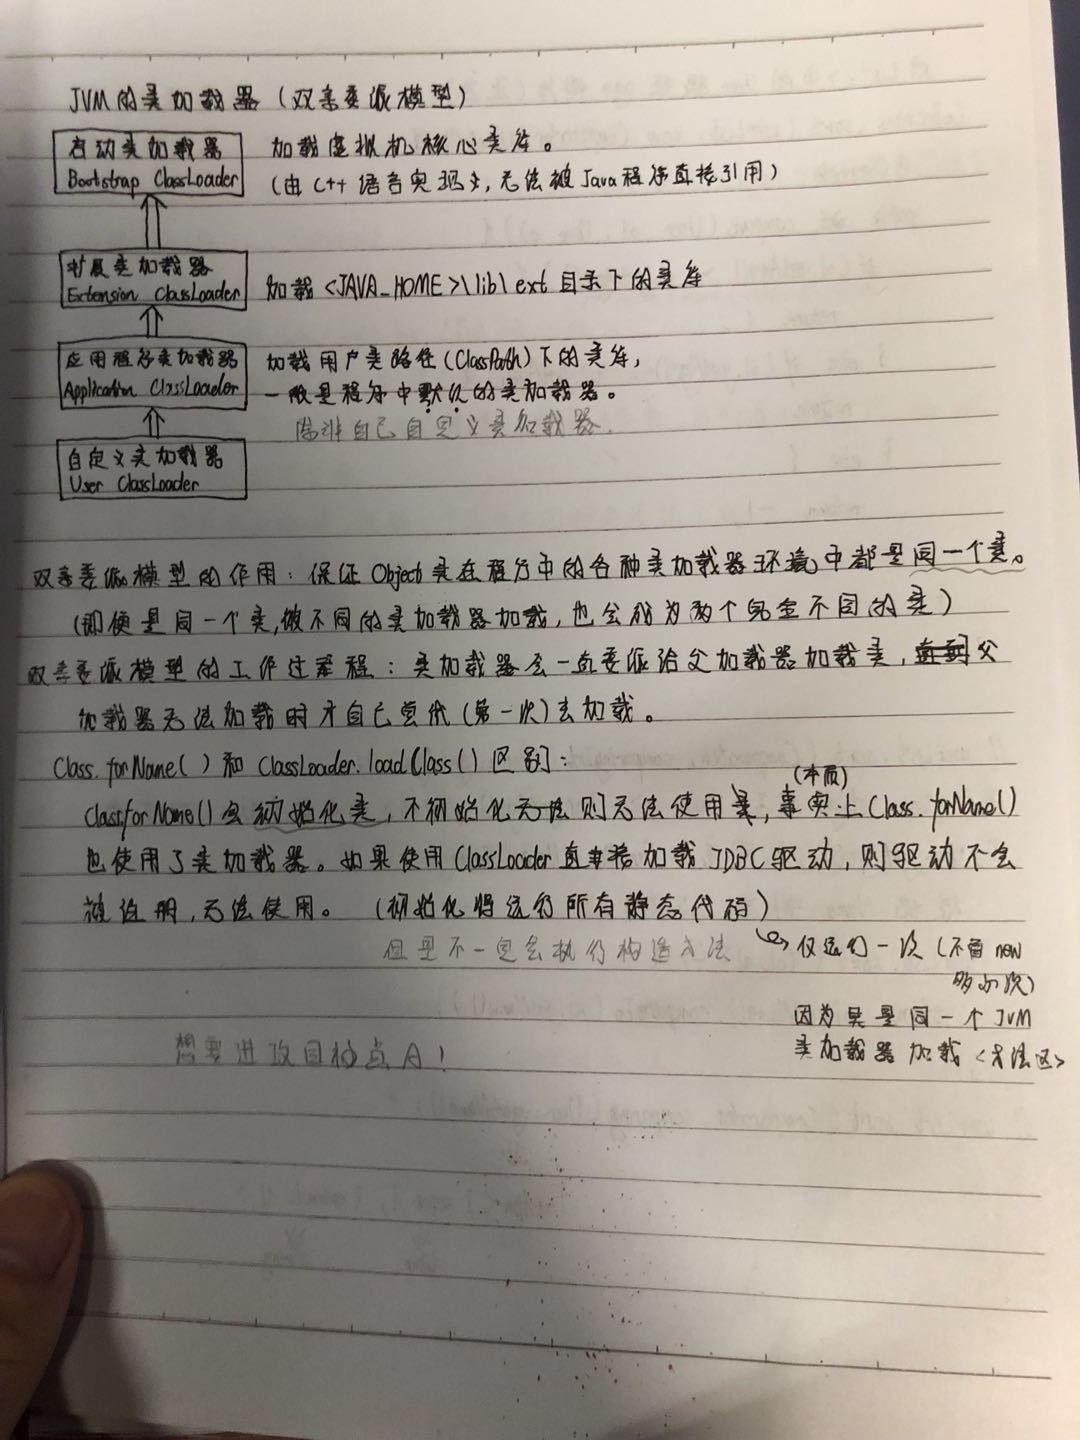 JVM的类加载器（双亲委派模型）
启动类加载器
Bootstrap ClassLoader
加载虚拟机核心类库。
（由C++语言实现，无法被Java程序直接引用）
扩展类加载器
Extension ClassLoader
加载<JAVA_HOME>\lib\ext目录下的类库
应用程序类加载器
Application ClassLoader
加载用户类路径（ClassPath）下的类库，
一般是程序中默认的类加载器。
除非自己自定义类加载器.
自定义类加载器
User ClassLoader
双亲委派模型的作用：保证Object类在程序中的各种类加载器环境中都是同一个类。
（即便是同一个类,被不同的类加载器加载，也会成为两个完全不同的类）
双亲委派模型的工作过程：类加载器会一直委派给父加载器加载类，父
加载器无法加载时才自己尝试（第一次）去加载。
Class.forName()和ClassLoader.loadClass()区别：
Class.forName()会初始化类，不初始化则无法使用，事实上Class.forName()
（本质）
也使用了类加载器。如果使用ClassLoader直接加载JDBC驱动，则驱动不会
被注册，无法使用。（初始化将运行所有静态代码）
但是不一定会执行构造方法
仅运行一次（不管new
多少次）
因为是同一个JVM
类加载器加载<方法区>
想要进攻目标点A！